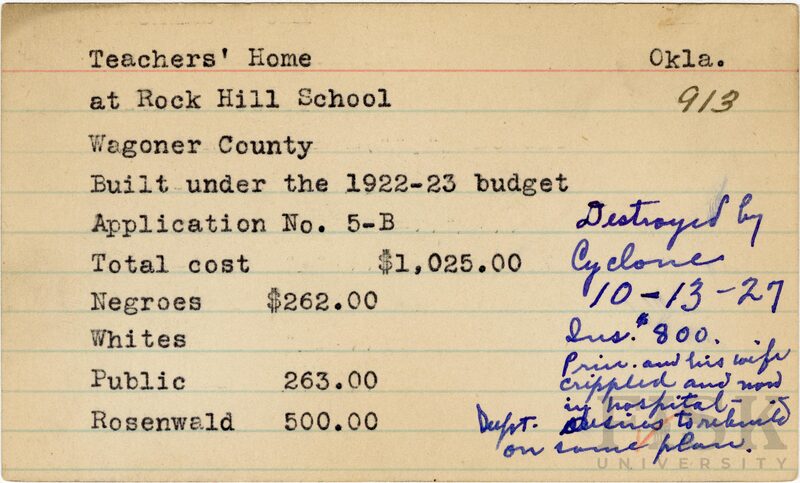 Teachers' Home Okla.
at Rock Hill School 913
Wagoner County
Built under the 1922-23 budget
Application No. 5-B
Total cost $1,025.00
Negroes $262.00
Whites
Public 263.00
Rosenwald 500.00
Destroyed by
Cyclone
10-13-27
Ins. $800.
Prin. and his wife
crippled and now
in hospital-
Dept. desires to rebuild
on same plan.
FISK
UNIVERSITY